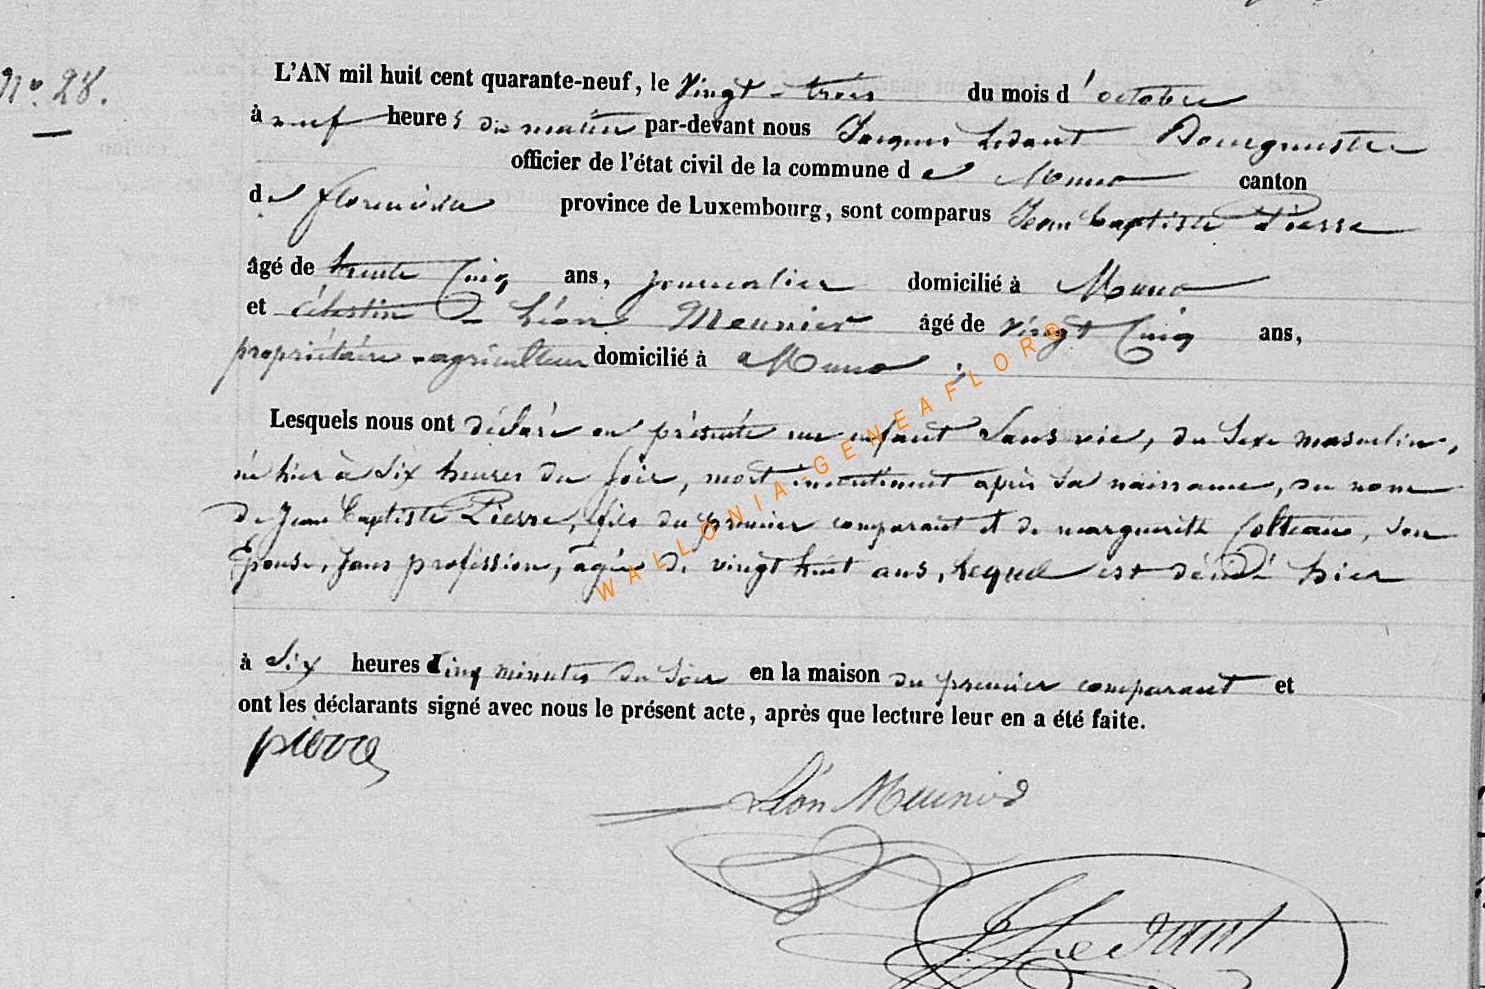 N° 28.
L'AN mil huit cent quarante-neuf, le vingt-trois du mois d'octobre
à neuf heures du matin par-devant nous Jacques Ledant Bourgmestre
officier de l'état civil de la commune de Muno canton
de florenville province de Luxembourg, sont comparus Jean Baptiste Pierre
âgé de trente Cinq ans, journalier domicilié à Muno
et célestin Léon Meunier âgé de vingt Cinq ans,
propriétaire-agriculteur domicilié à Muno ;
Lesquels nous ont déclaré et présenté un enfant Sans vie, du Sexe masculin,
né hier à Six heures du soir, mort après Sa naissance, du nom
de Jean Baptiste Pierre, fils du premier comparant et de marguerite Colteaux, Son
Epouse, Sans profession, agée de vingt huit ans, lequel est décédé hier
à Six heures Cinq minutes du Soir en la maison du premier comparant et
ont les déclarants signé avec nous le présent acte, après que lecture leur en a été faite.
pierre
Léon Meunier
J Ledant
WALLONIA-GENEAFLORE